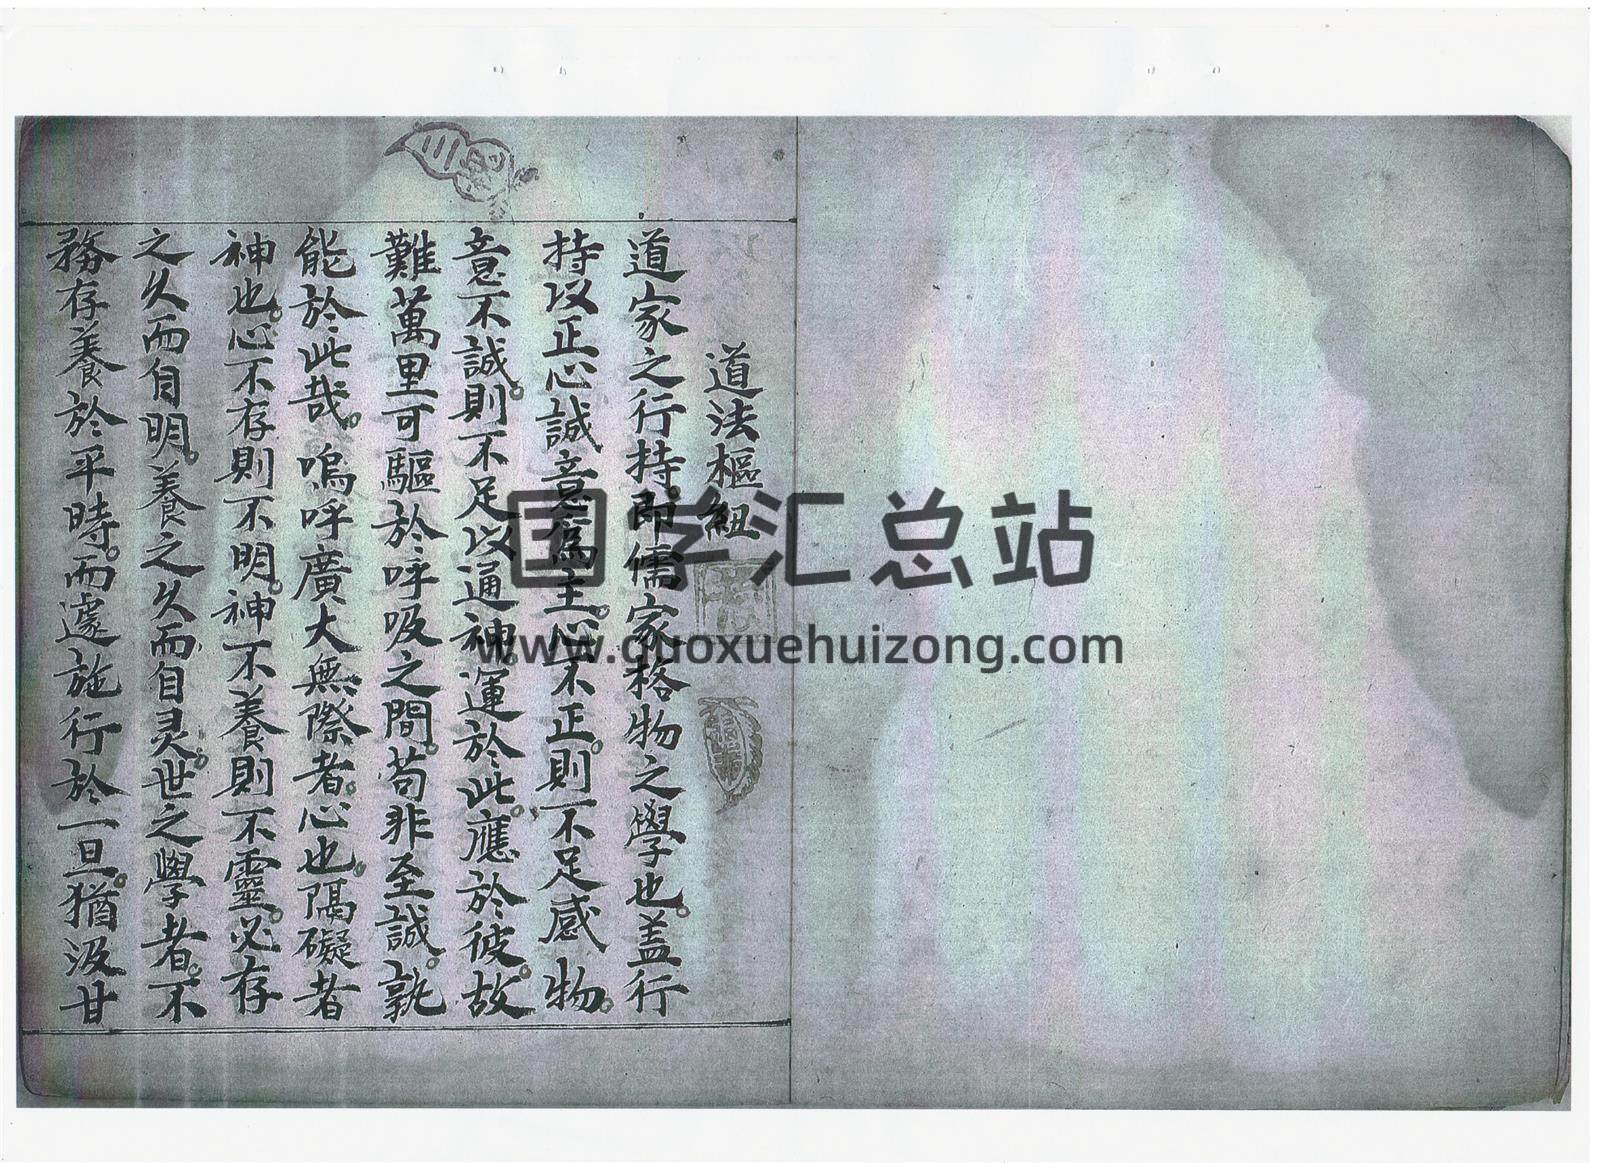 道法樞紐
道家之行持。即儒家格物之學也。盖行
持以正心誠意為主。心不正。則不足感物。
意不誠。則不足以通神。運於此。應於彼。故
難萬里可驅於呼吸之間。苟非至誠。孰
能於此哉。嗚呼廣大無際者。心也。隔礙者
神也。心不存則不明。神不養則不靈。必存
之久而自明。養之久而自灵。世之學者。不
務存養於平時。而遽施行於一旦。猶汲甘
国学汇总站
www.guoxuehuizong.com